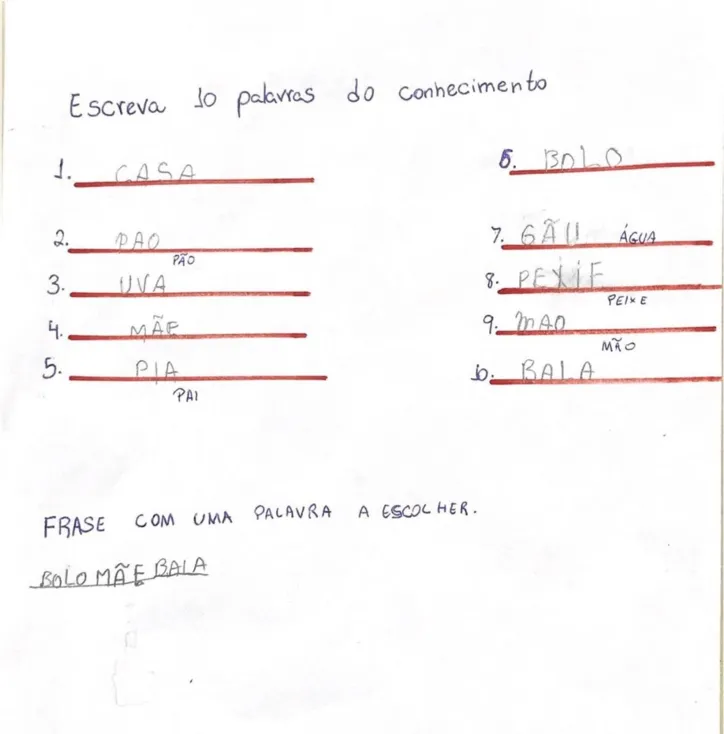 Escreva 10 palavras do conhecimento
1. CASA
2. PAO
PÃO
3. UVA
4. MÃE
5. PIA
PAI
6. BOLO
7. GÃU ÁGUA
8. PEXIE
PEIXE
9. MAO
MÃO
10. BALA
FRASE COM UMA PALAVRA A ESCOLHER.
BOLO MÃE BALA